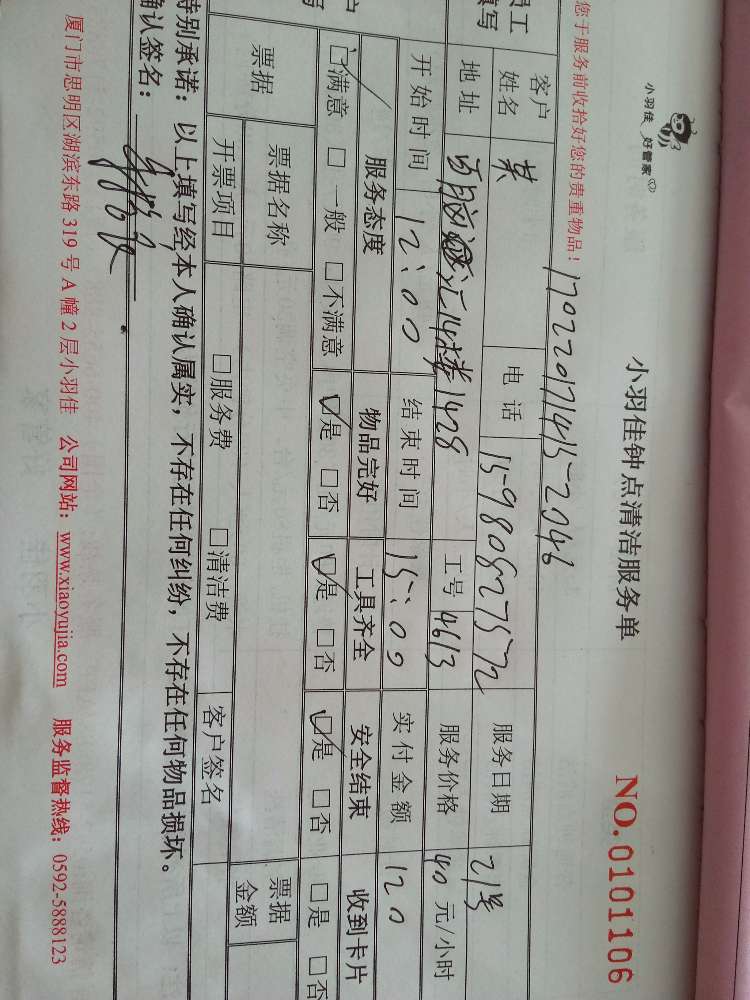 小羽佳 好管家
小羽佳钟点清洁服务单
NO.0101106
您于服务前收拾好您的贵重物品！
170220171415-2046
员工 填写
客户姓名 黄 电话 15980827572 服务日期 21号
地址 百脑汇14楼1428 工号 4613 服务价格 40 元/小时
开始时间 12:00 结束时间 15:00 实付金额 120
户 写
服务态度 物品完好 工具齐全 安全结束 收到卡片
☑满意 □一般 □不满意 ☑是 □否 ☑是 □否 ☑是 □否 □是 □否
票据 票据名称 票据金额
开票项目 □服务费 □清洁费 客户签名
特别承诺：以上填写经本人确认属实，不存在任何纠纷，不存在任何物品损坏。
确认签名：
厦门市思明区湖滨东路 319 号 A 幢 2 层小羽佳 公司网站：www.xiaoyujia.com 服务监督热线：0592-5888123